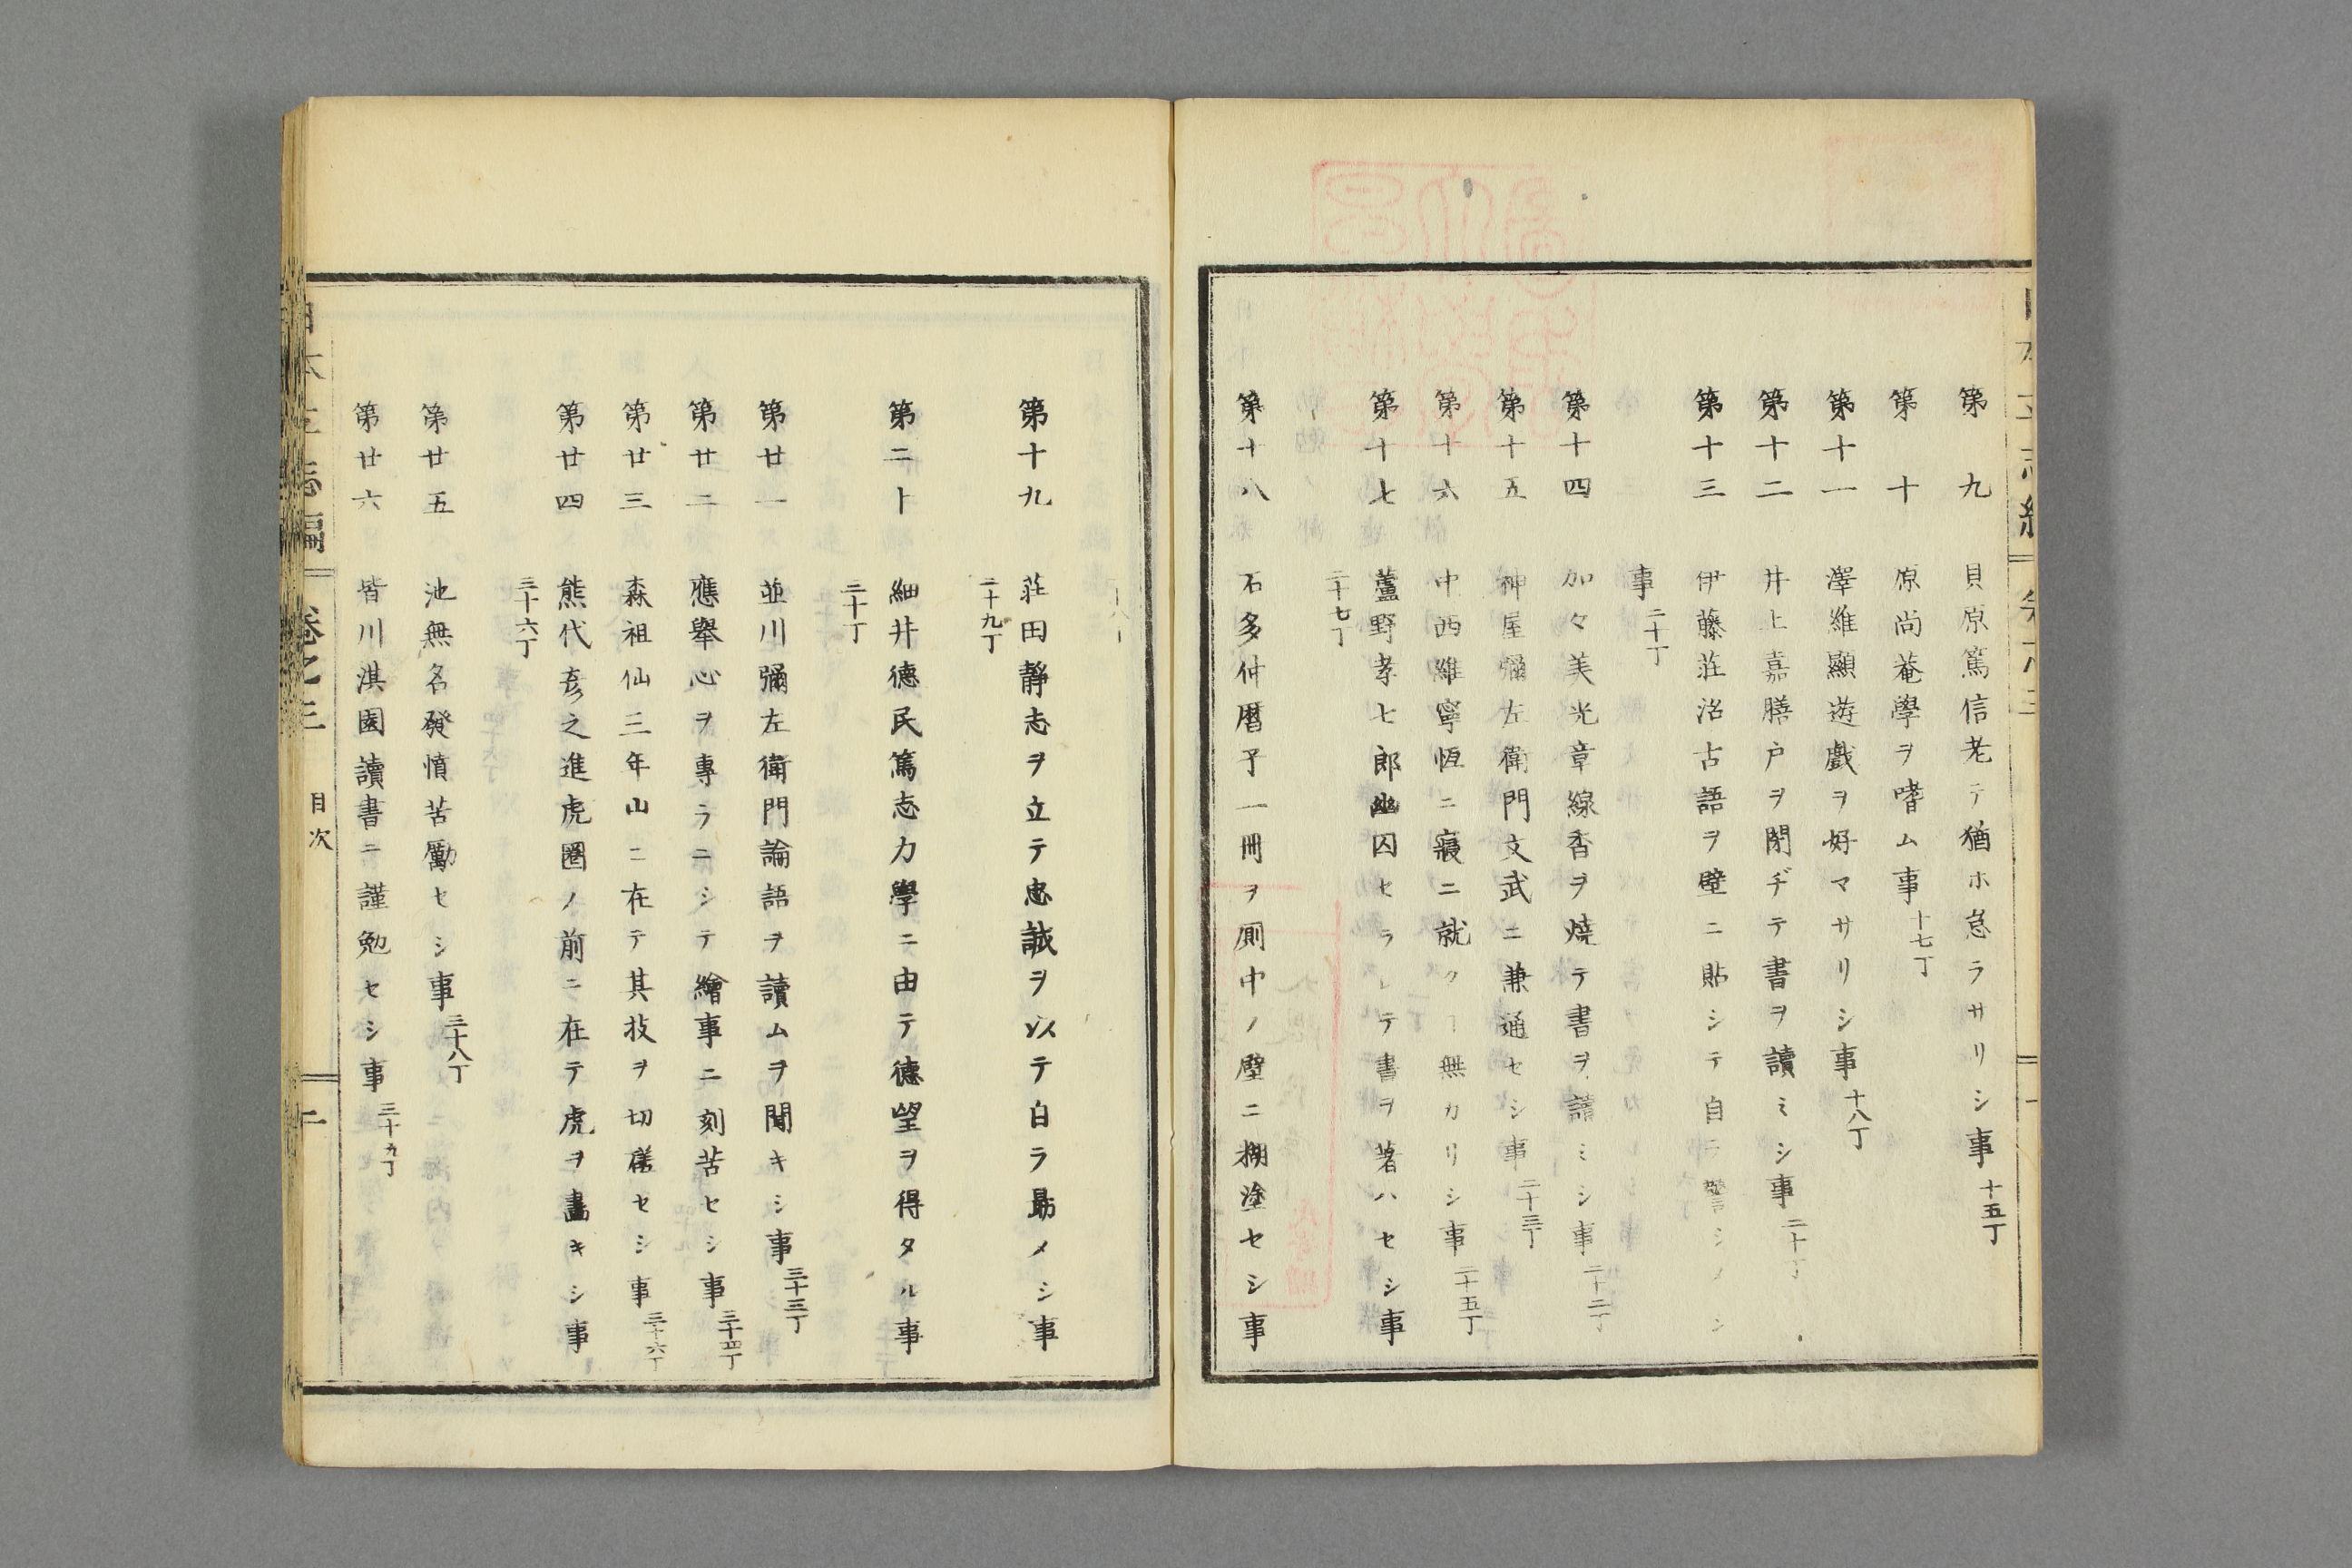 第九 貝原篤信老テ猶ホ怠ラサリシ事 十五丁
第十 原尚菴學ヲ嗜ム事 十七丁
第十一 澤維顯遊戲ヲ好マサリシ事 十八丁
第十二 井上嘉膳戸ヲ閉ヂテ書ヲ讀ミシ事 二十丁
第十三 伊藤莊治古語ヲ壁ニ貼シテ自ラ警シメシ
事 二十丁
第十四 加々美光章線香ヲ燒テ書ヲ讀ミシ事 二十二丁
第十五 神屋彌左衛門文武ニ兼通セシ事 二十三丁
第十六 中西維寧恆ニ寢ニ就クヿ無カリシ事 二十五丁
第十七 蘆野孝七郎幽囚セラレテ書ヲ著ハセシ事
二十七丁
第十八 石多仲暦予一冊ヲ厠中ノ壁ニ糊塗セシ事
第十九 莊田靜志ヲ立テ忠誠ヲ以テ白ラ勗メシ事
二十九丁
第二十 細井德民篤志力學ニ由テ德望ヲ得タル事
三十丁
第廿一 並川彌左衛門論語ヲ讀ムヲ聞キシ事 三十三丁
第廿二 應擧心ヲ專ラニシテ繪事ニ刻苦セシ事 三十四丁
第廿三 森祖仙三年山ニ在テ其技ヲ切磋セシ事 三十六丁
第廿四 熊代彥之進虎圈ノ前ニ在テ虎ヲ畵キシ事
三十六丁
第廿五 池無名發憤苦勵セシ事 三十八丁
第廿六 皆川淇園讀書ニ謹勉セシ事 三十九丁
日本立志編 卷之三 目次 二